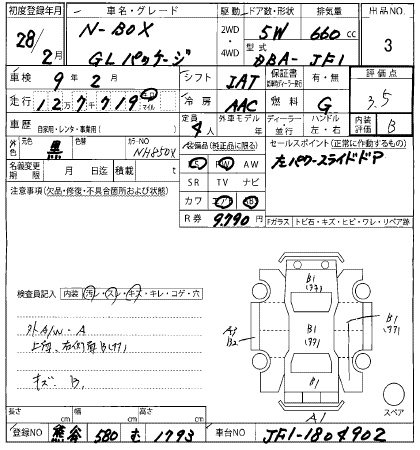 初度登録年月
車名・グレード
駆動
ドア数・形状
排気量
出品NO.
28/2月
N-BOX
2WD
・
4WD
5W
660cc
3
G Lパッケージ
型式
DBA-JF1
車検
9年2月
シフト
IAT
保証書
有・無
評価点
3.5
走行
127,719
マイル
冷房
AAC
燃料
G
車歴
自家用・レンタ・事業用( )
定員
4人
外車モデル
ディーラー・並行
ハンドル
左・右
内装評価
B
外色
元色
黒
色替
カラーNO
NH850X
装備品(純正品に限る)
セールスポイント(正常に作動するもの)
PS
PW
AW
左パワースライドドア
名義変更期限
月 日迄
積載
t
SR
TV
ナビ
注意事項(欠品・修復・不具合箇所および状態)
カワ
エアB
ABS
R券
9,790円
Fガラス
トビ石・キズ・ヒビ・ワレ・リペア跡
検査員記入
内装
汚レ・スレ・キズ・キレ・コゲ・穴
外A/W・A
キズB.
B1
B1
B1
B1
A1
B2
A1
スペア
長さ
cm
幅
cm
高さ
cm
登録NO
熊谷 580 む 1793
車台NO
JF1-1804902